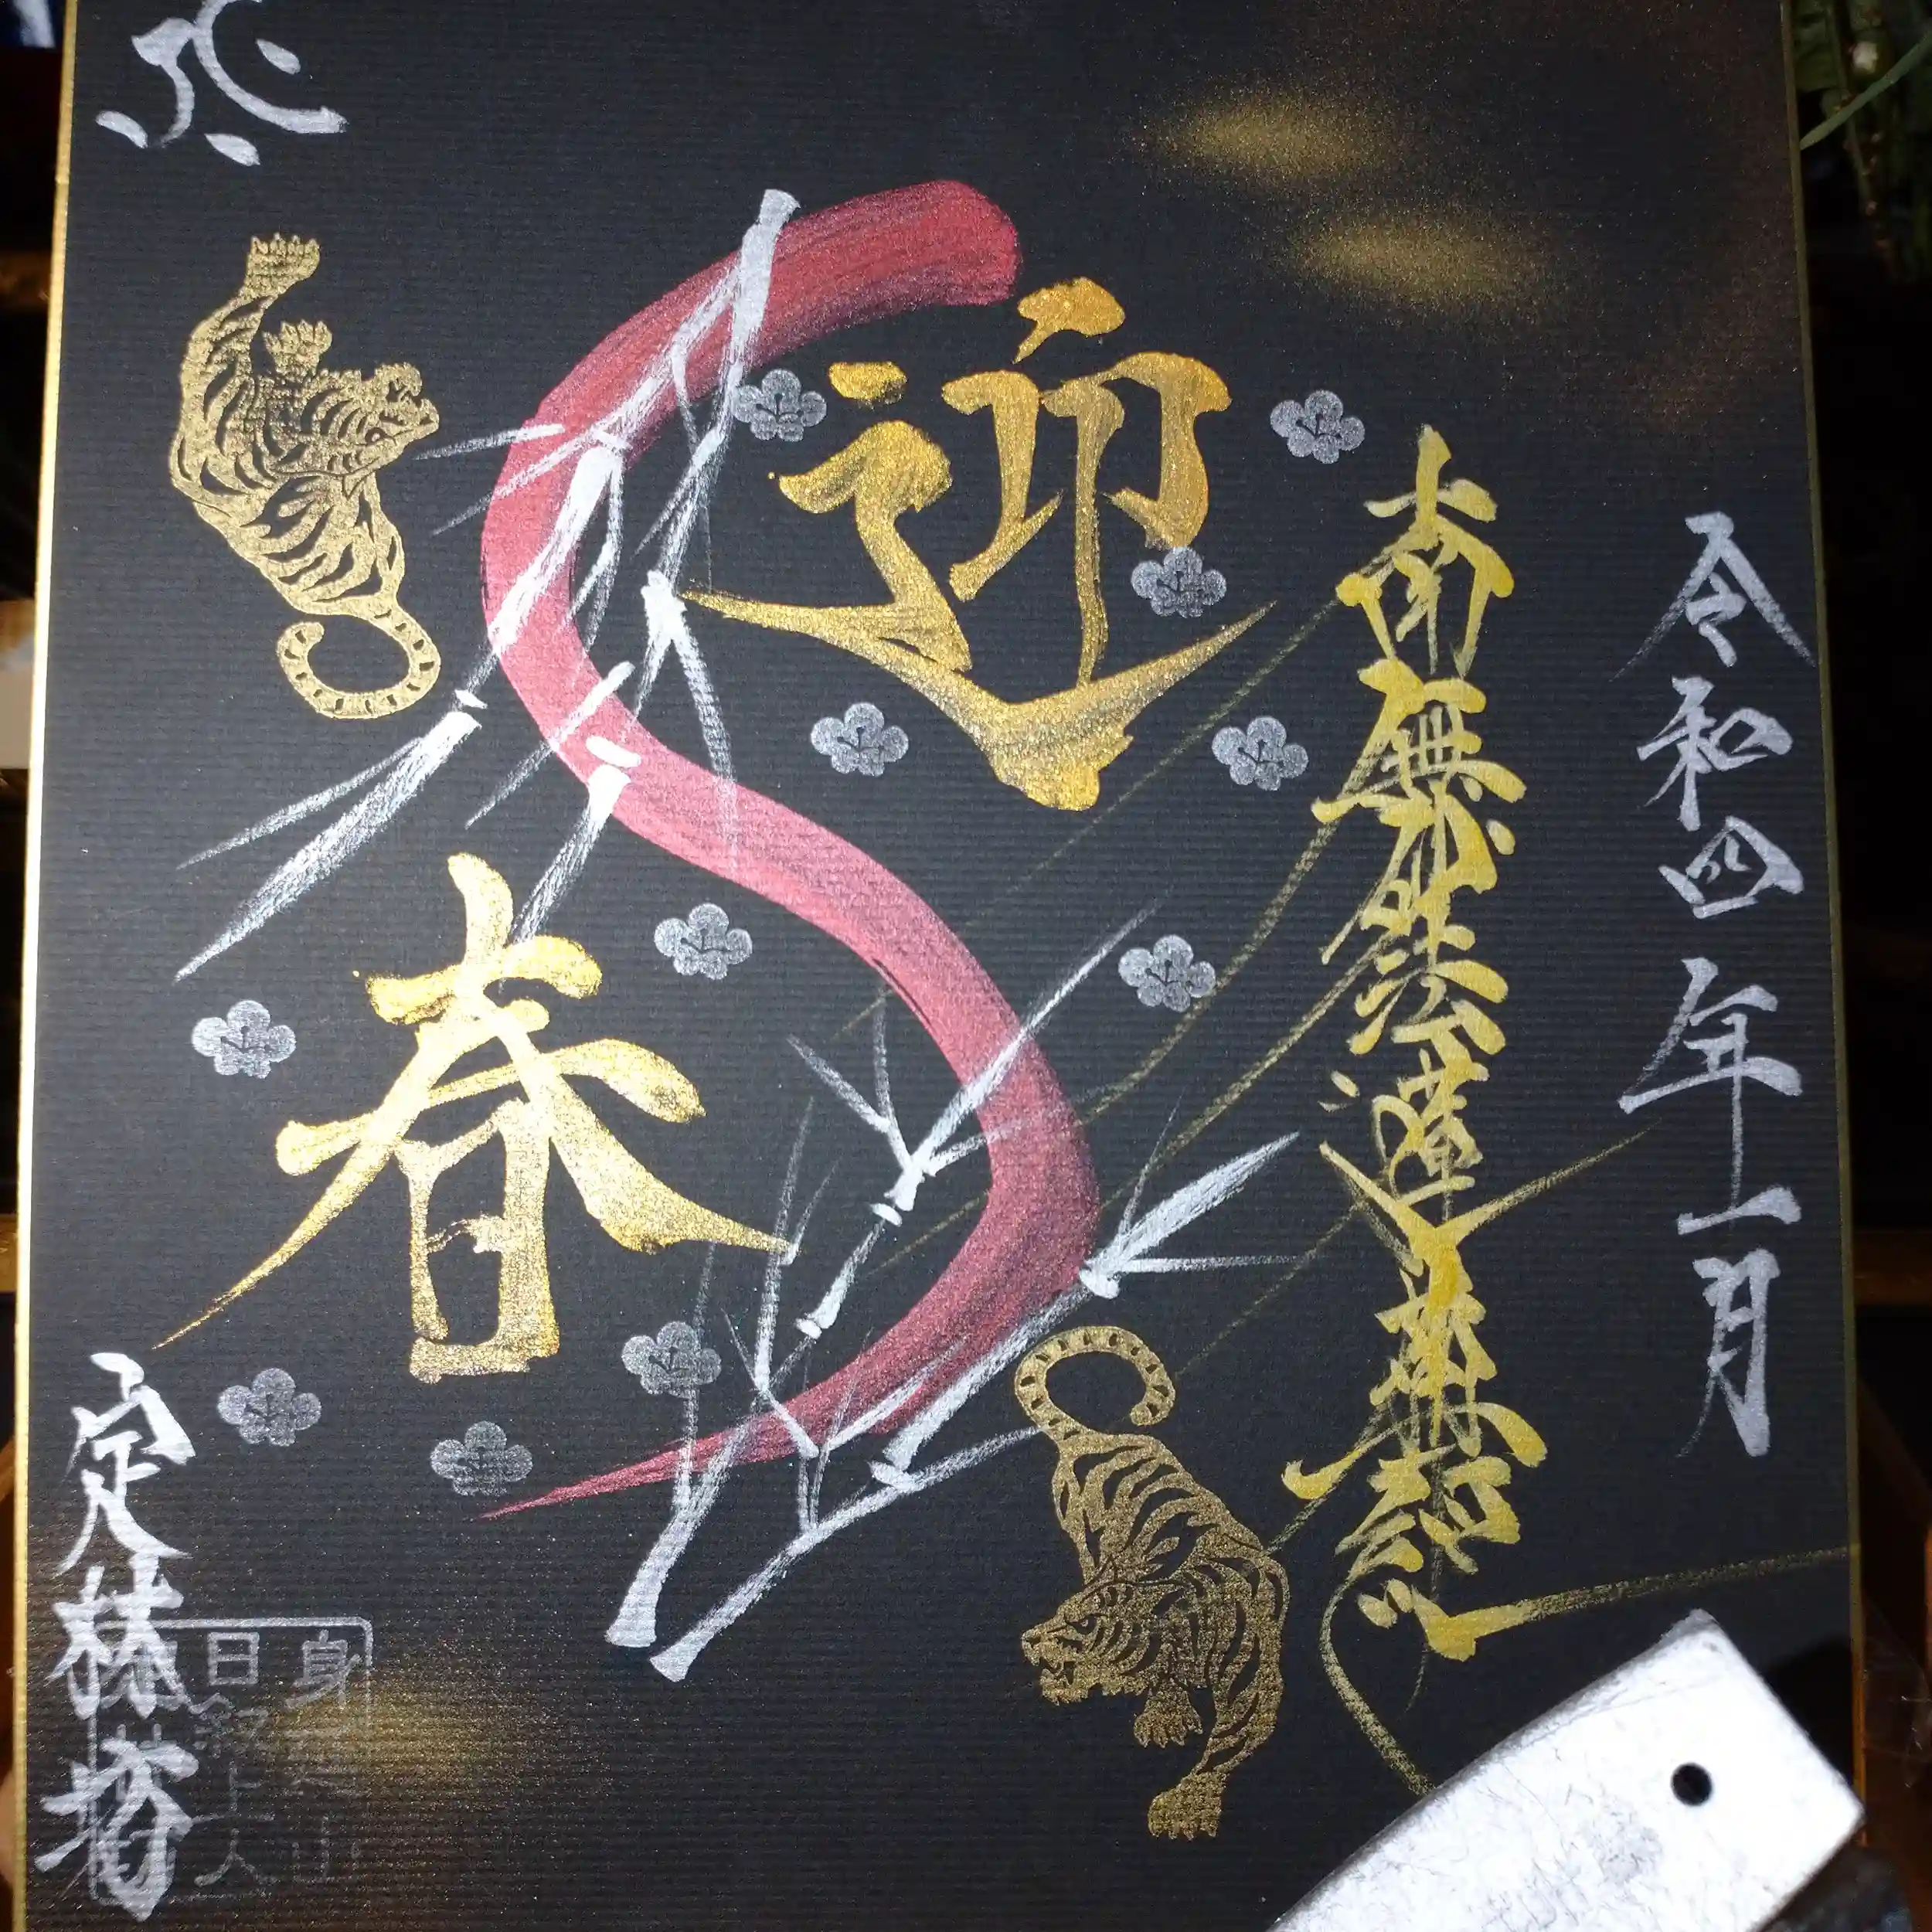 令和四年一月
南無妙法蓮華経
迎
春
定林坊
身延山
日叙上人